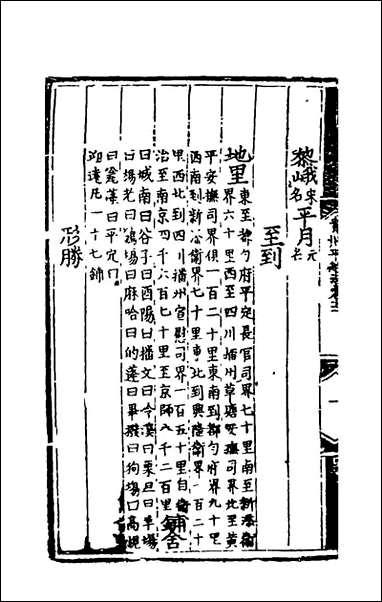 黎峨宋名平月元名
至到
地里東至都勻府平定長官司界七十里南至新添衛
界六十里西至四川播州草塘安撫司界北至黃
平安撫司界俱一百二十里東南到都勻府界九十里
西南到新添衛界七十里東北到興隆衛界一百二十
里西北到四川播州宣慰司界一百五十里自衛
治至南京四千六百七十里至京師八千二百里舖舍
曰城南曰谷子曰酉陽曰播文曰令溪曰栗旦曰羊場
曰楊老曰雞場曰麻哈曰的蓬曰畢撥曰狗場曰高規
曰瓮藻曰平定曰
迎達凡一十七舖
形勝